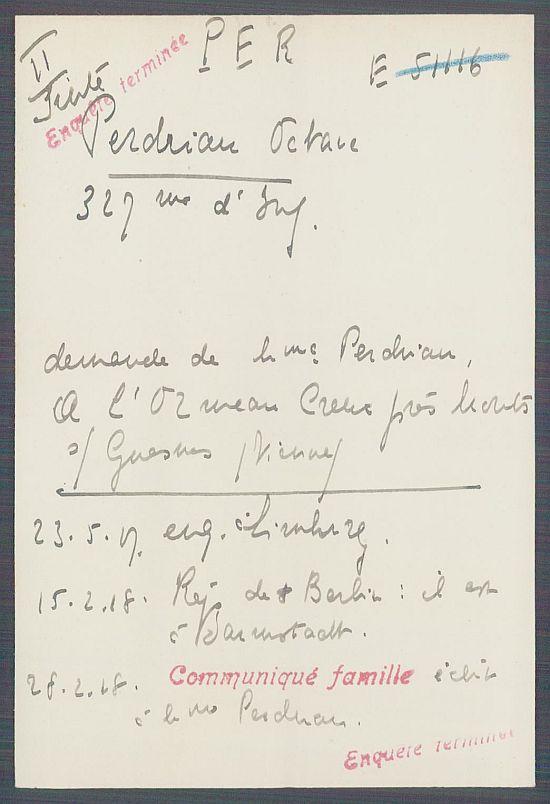 II
P E R
E 51116
Enquête terminée
Perdriau Octave
327 me d'Inf.
demande de Mme Perdriau,
A l'Ormeau Creux près Monts
s/ Guesnes (Vienne)
23.5.17. enq. à Limburg.
15.2.18. Rép. de Berlin : il est
à Darmstadt.
28.2.18. Communiqué famille écrit
à Mme Perdriau.
Enquête terminée